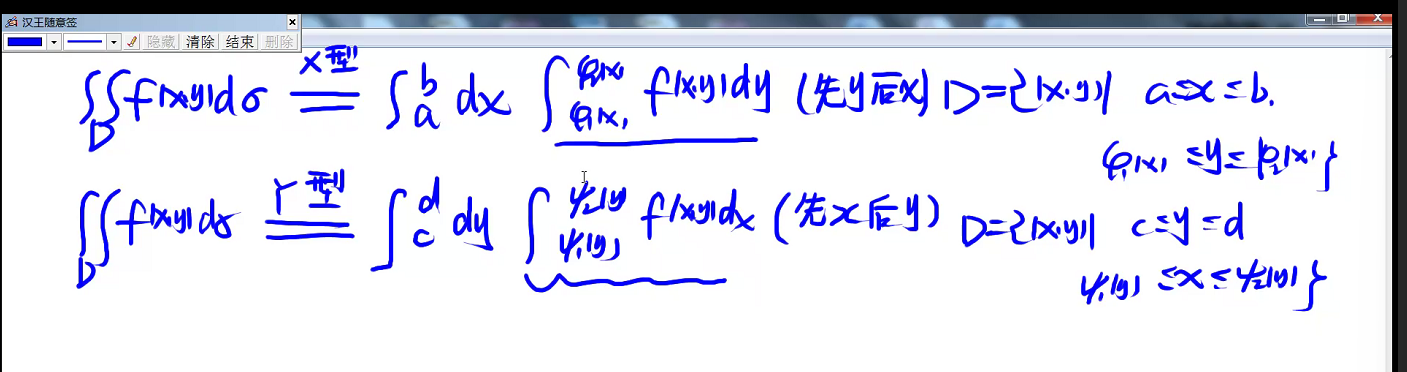 汉王随意签
隐藏 清除 结束 删除
∬_D f(x,y)dσ X型 == ∫_a^b dx ∫_{φ₁(x)}^{φ₂(x)} f(x,y)dy (先y后x) D={(x,y)| a≤x≤b.
φ₁(x) ≤y≤ φ₂(x)}
∬_D f(x,y)dσ Y型 == ∫_c^d dy ∫_{ψ₁(y)}^{ψ₂(y)} f(x,y)dx (先x后y) D={(x,y)| c≤y≤d
ψ₁(y) ≤x≤ ψ₂(y)}